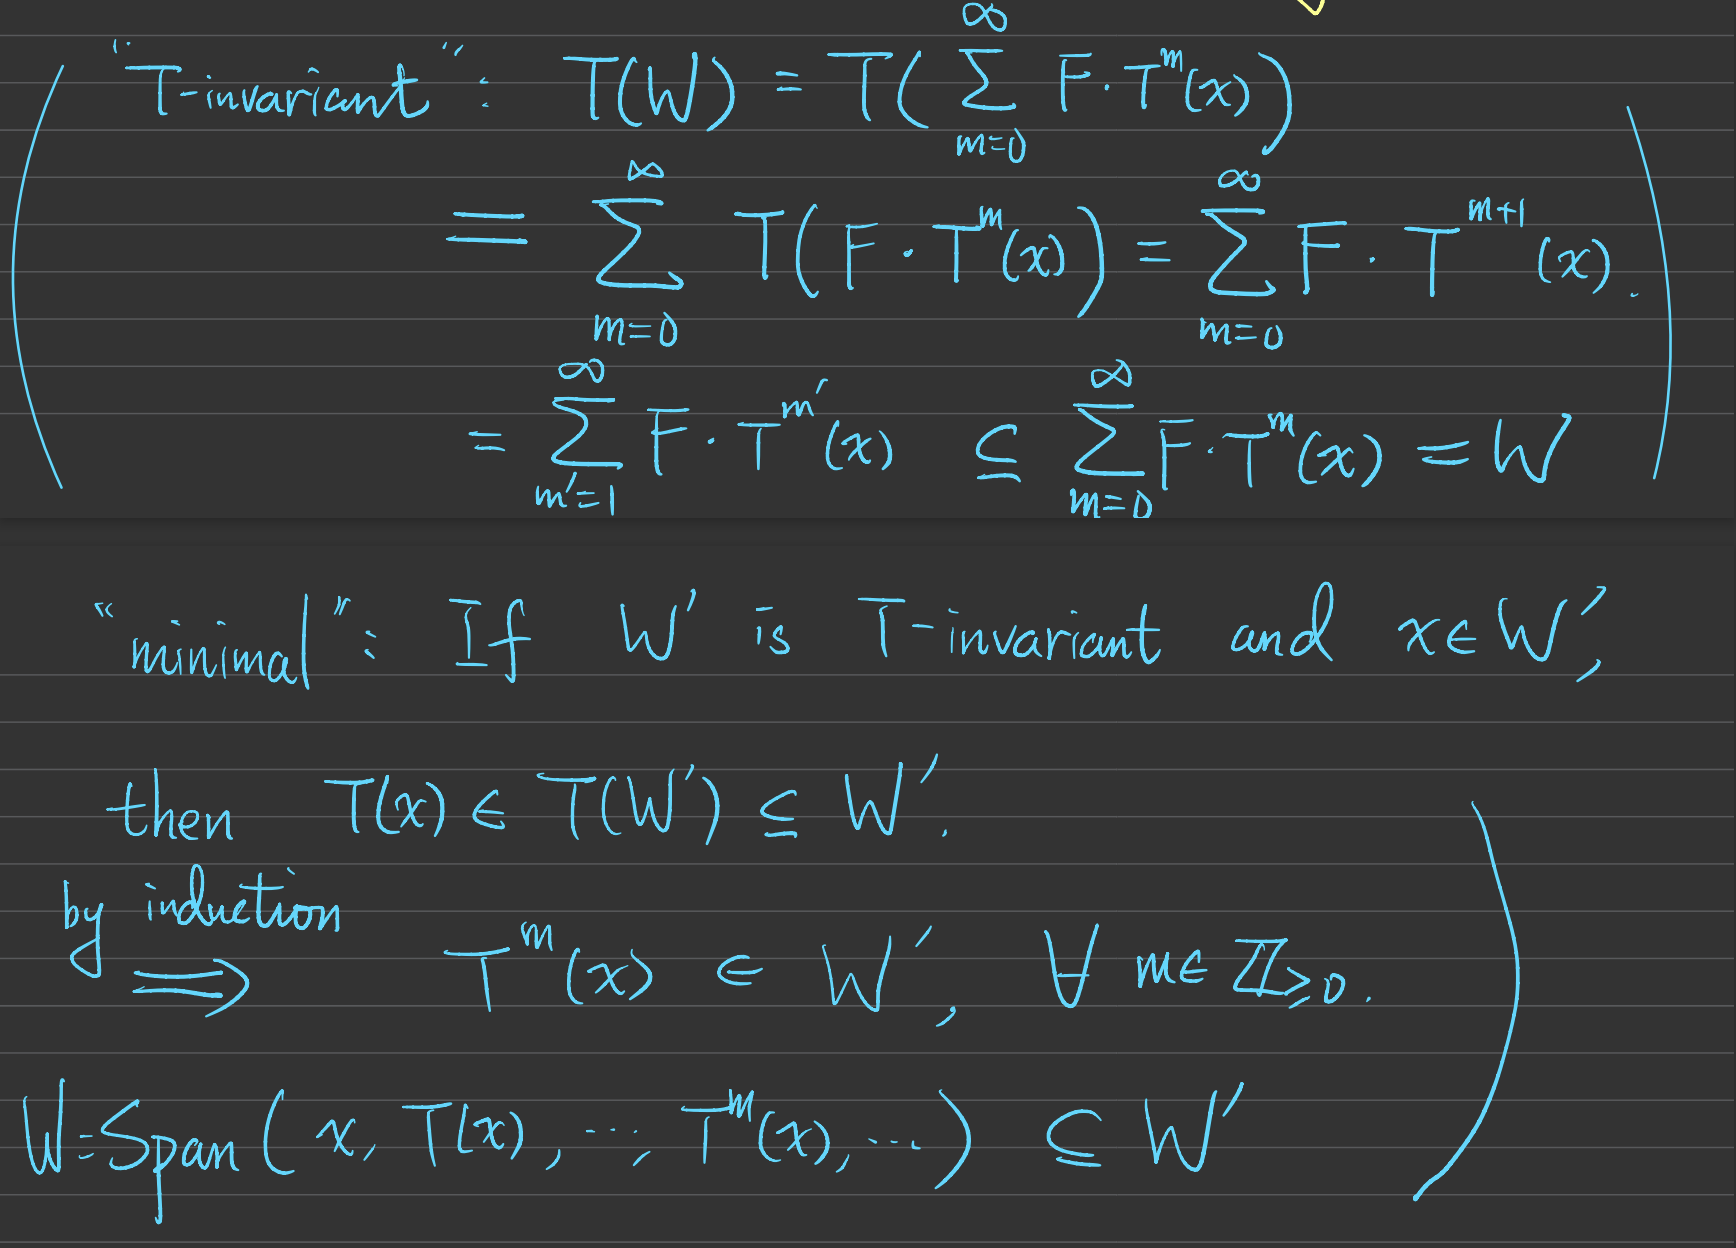 ( "T-invariant": T(W) = T( ∑_{m=0}^{∞} F·T^m(x) )
= ∑_{m=0}^{∞} T( F·T^m(x) ) = ∑_{m=0}^{∞} F·T^{m+1}(x).
= ∑_{m'=1}^{∞} F·T^{m'}(x) ⊆ ∑_{m=0}^{∞} F·T^m(x) = W )
"minimal": If W' is T-invariant and x∈W',
then T(x) ∈ T(W') ⊆ W'.
by induction
⟹ T^m(x) ∈ W', ∀ m∈ℤ_{≥0}.
W=Span( x, T(x), ..., T^m(x), ... ) ⊆ W' )